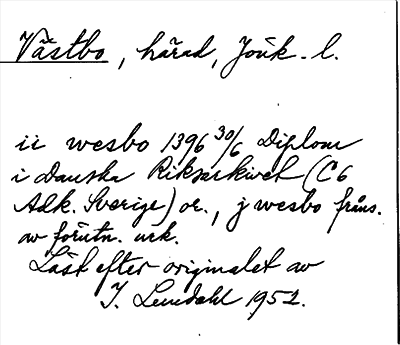 Västbo, härad, Jönk. l.
ii wesbo 1396 30/6 Diplom
i Danska Riksarkivet (C6
Adk. Sverige) or., j wesbo från s.
av förutn. urk.
Läst efter originalet av
I. Lundahl 1952.